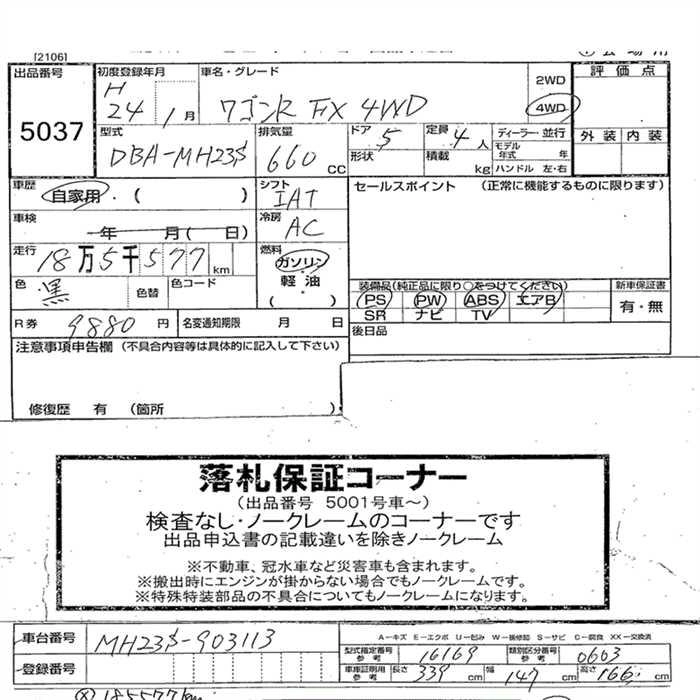 [2106]
出品番号 初度登録年月 車名・グレード 2WD 評価点
5037 H 24 1月 ワゴンR FX 4WD 4WD 外装 内装
型式 排気量 ドア 5 定員 4人 ディーラー・並行
DBA-MH23S 660 CC 形状 積載 kg モデル年式 年
ハンドル 左・右
車歴 自家用・( ) シフト IAT セールスポイント (正常に機能するものに限ります)
車検 年 月( 日) 冷房 AC
走行 18万5千577km 燃料 ガソリン
軽油
( )
色 黒 色替 色コード 装備品(純正品に限り○をつけてください) 新車保証書
PS PW ABS エアB 有・無
SR ナビ TV
R券 9880円 名変通知期限 月 日 後日品
注意事項申告欄 (不具合内容等は具体的に記入して下さい)
修復歴 有 (箇所 )
落札保証コーナー
(出品番号 5001号車〜)
検査なし・ノークレームのコーナーです
出品申込書の記載違いを除きノークレーム
※不動車、冠水車など災害車も含まれます。
※搬出時にエンジンが掛からない場合でもノークレームです。
※特殊特装部品の不具合についてもノークレームになります。
A-キズ E-エクボ U-凹み W-補修跡 S-サビ C-腐食 XX-交換済
車台番号 MH23S-903113 型式指定番号 参考 16169 類別区分番号 参考 0603
登録番号 車庫証明用 参考 長さ 339cm 幅 147cm 高さ 166cm
185577km